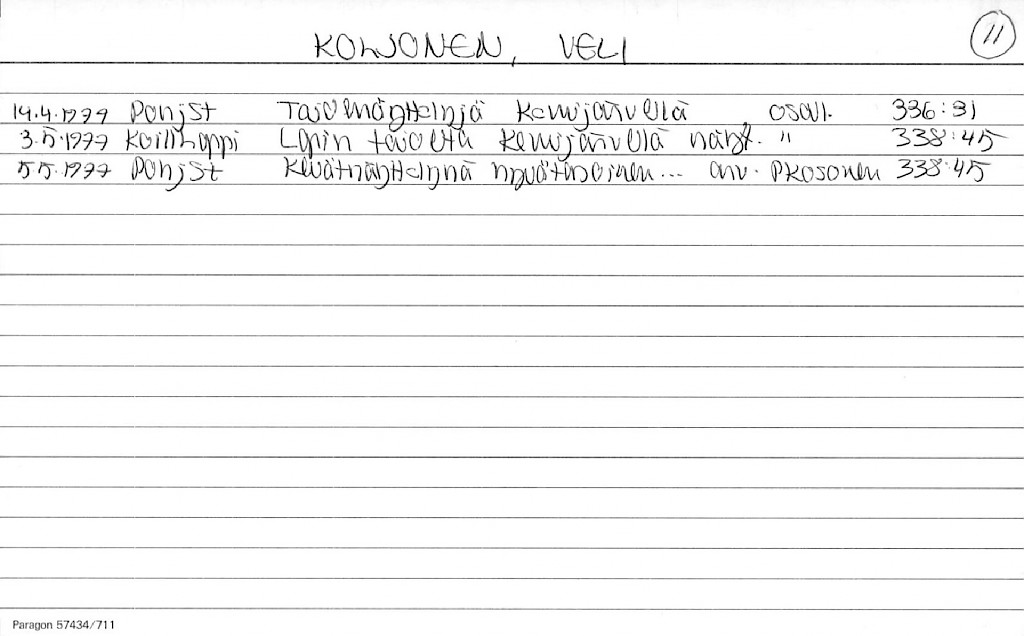 11
KOLJONEN, VELI
14.4.1977 PohjSt Taidenäyttelyjä Kemijärvellä osall. 336:31
3.5.1977 KoillLappi Lapin taidetta Kemijärvellä näytt. " 338:45
5.5.1977 PohjSt Kevätnäyttelynä arv. PKosonen 338:45
Paragon 57434/711